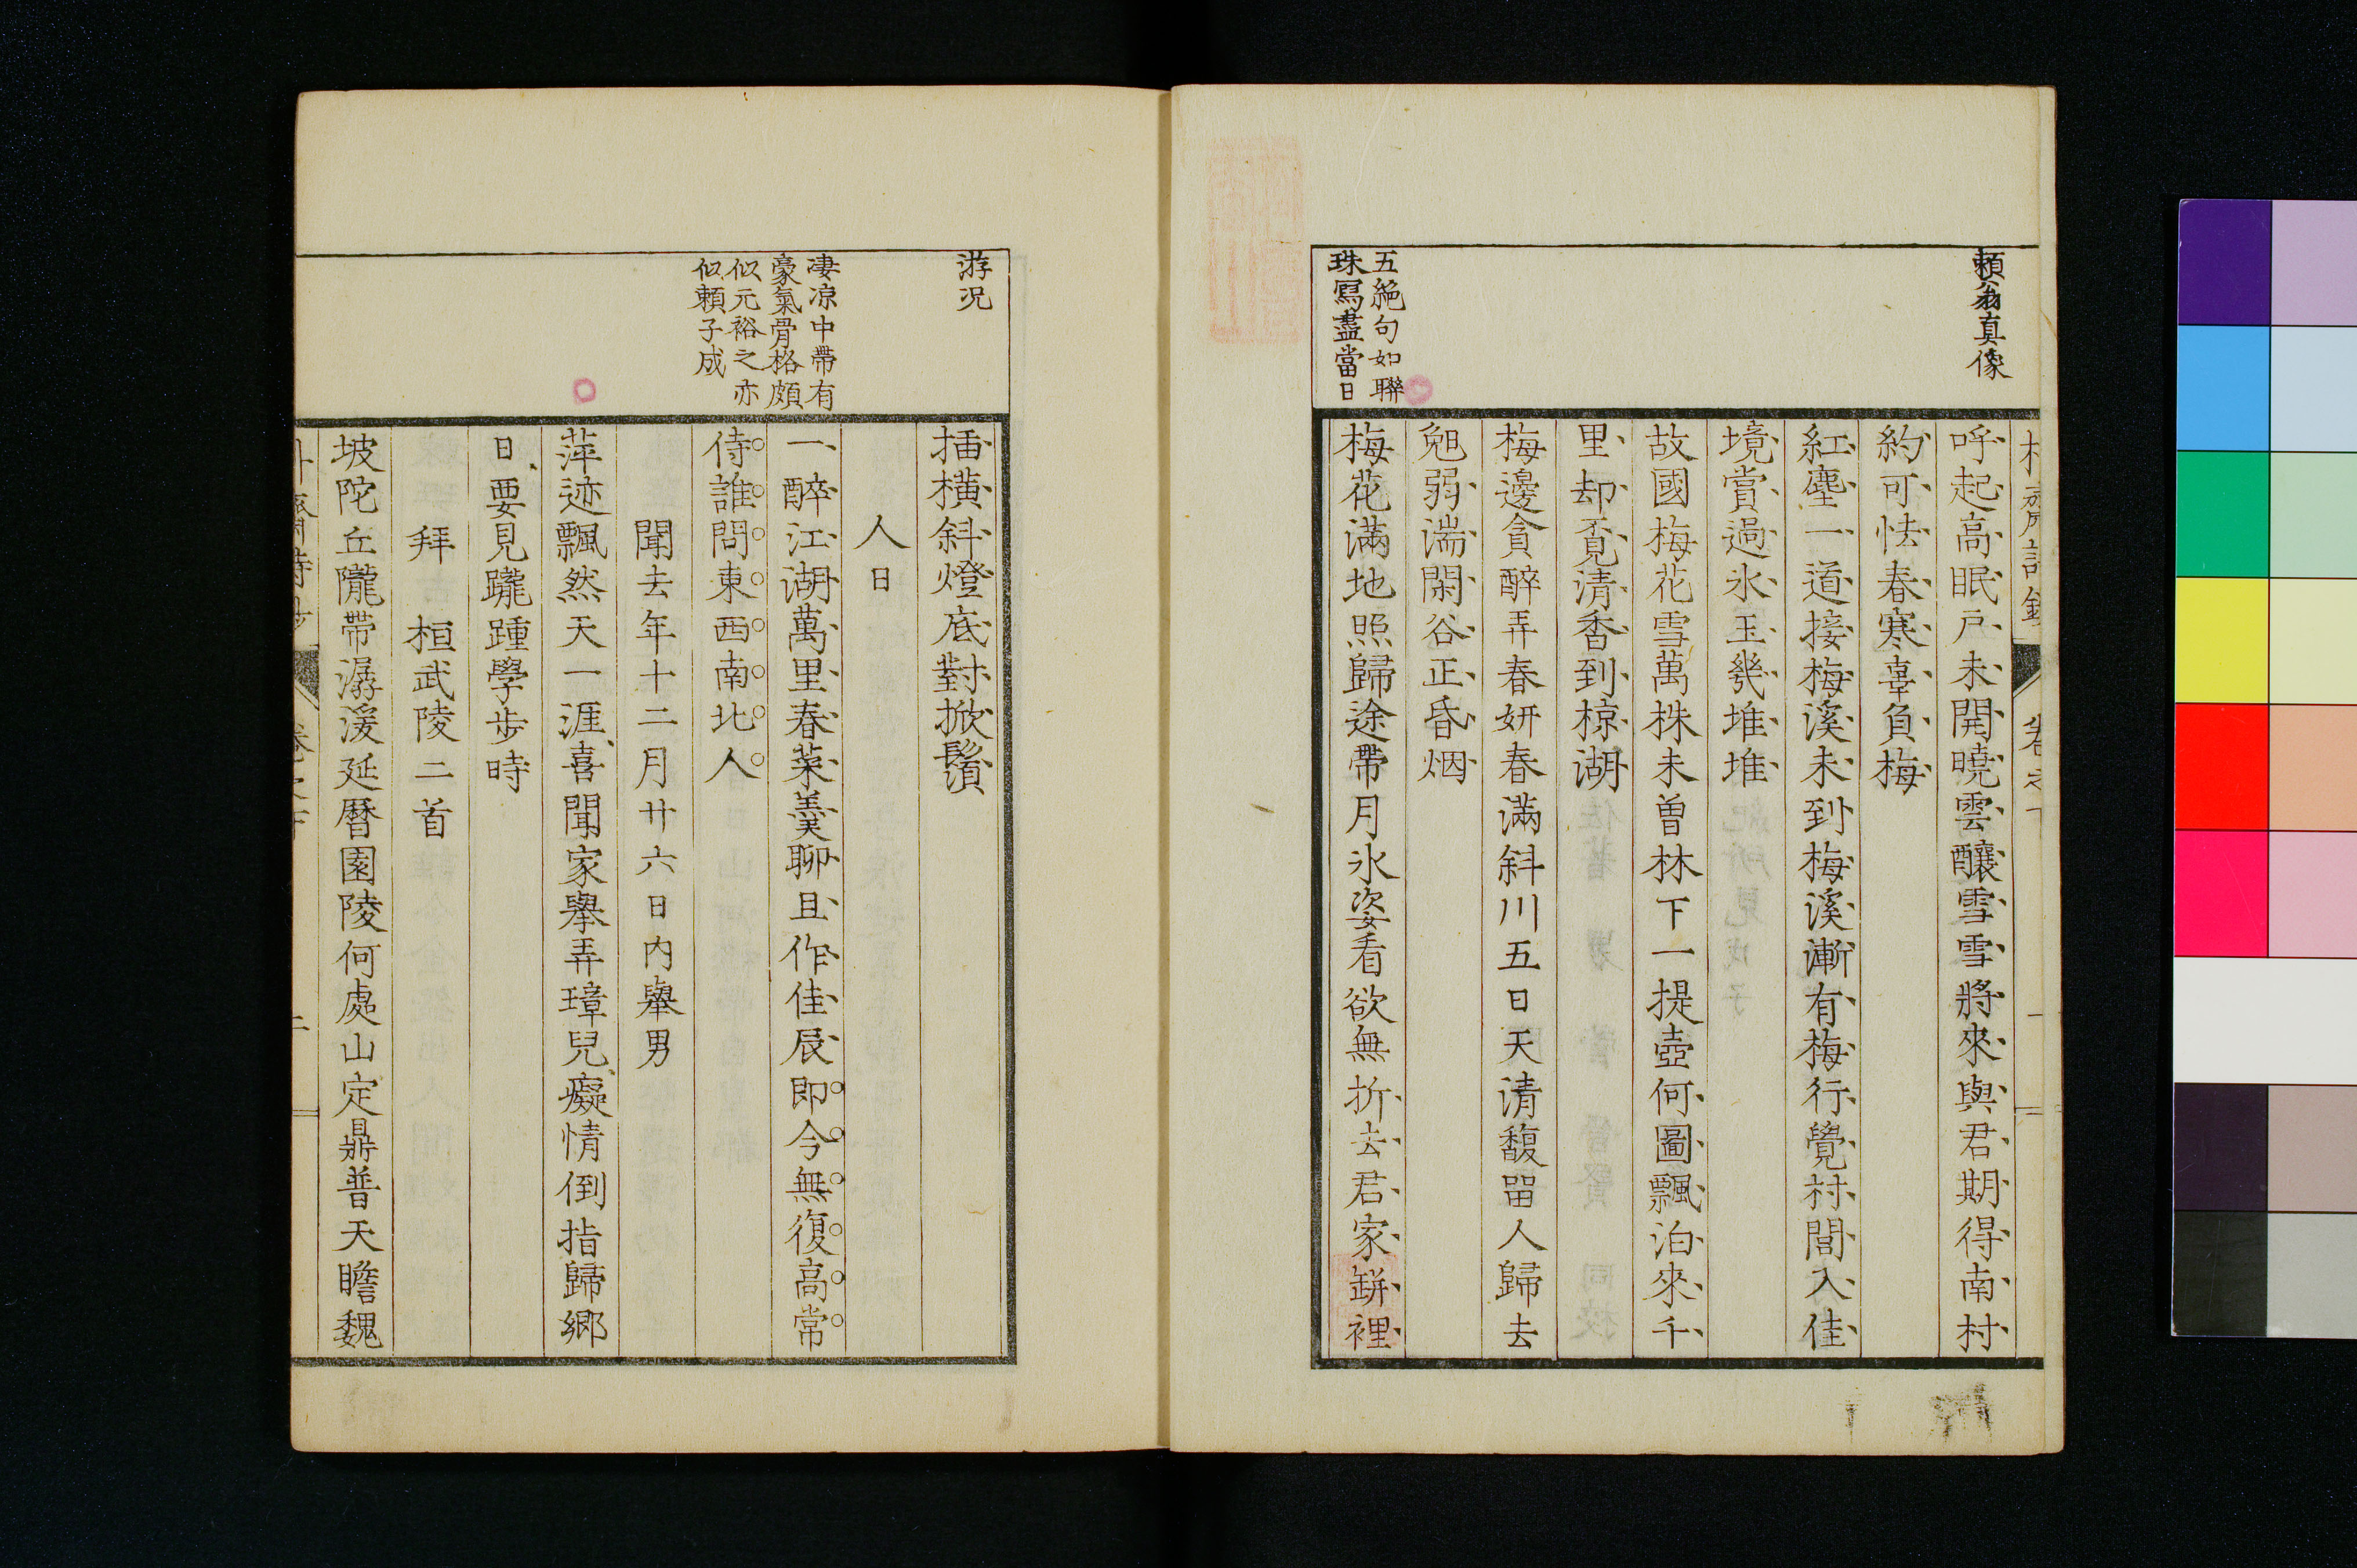 頼翁真像
呼起高眠戸未開曉雲釀雪雪將來與君期得南村
約可怯春寒辜負梅
紅塵一道接梅溪未到梅溪漸有梅行覺村閭入佳
境賞過氷玉幾堆堆
故國梅花雪萬株未曽林下一提壺何圖飄泊來千
里却覔清香到椋湖
梅邊貪醉弄春妍春滿斜川五日天清馥留人歸去
兔弱湍閑谷正昏烟
五絶句如聯
珠寫盡當日
梅花滿地照歸途帶月氷姿看欲無折去君家缾裡
游况
插橫斜燈底對掀鬚
人日
凄凉中帶有
豪氣骨格頗
似元裕之亦
似頼子成
一醉江湖萬里春菜羹聊且作佳辰即今無復高常
侍誰問東西南北人
聞去年十二月廿六日内擧男
萍迹飄然天一涯喜聞家擧弄璋兒癡情倒指歸郷
日要見蹣踵學步時
拜 桓武陵二首
坡陀丘隴帶潺湲延暦園陵何處山定鼎普天瞻魏